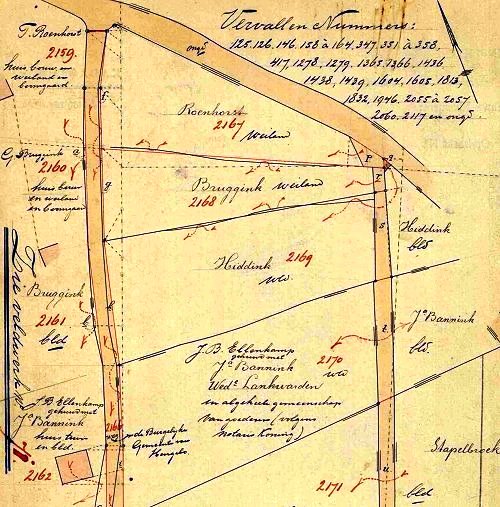 Vervallen Nummers:
125, 126, 146, 158 à 164, 347, 351 à 358,
417, 1278, 1279, 1365, 1366, 1436
1438, 1439, 1604, 1605, 1813,
1832, 1946, 2055 à 2057
2060, 2117 en ongt
T. Roenhorst
2159.
huis, bouw, en
weiland en
boomgaard
ongt
Roenhorst
2167
weiland
G. Bruggink
2160
huis bouw
en weiland
en boomgaard
Bruggink weiland
2168
Hiddink
bld
Hiddink 2169
wld.
Bruggink
2161
bld
Ja Bannink
bld.
J. B. Ellenkamp
gehuwd met
Ja Bannink
Wede Lankvarden
en algeheele gemeenschap
van goederen (volgens
Notaris Koning)
2170
wld
J. B. Ellenkamp
gehuwd met
Ja Bannink
huis tuin
en bld.
2162
de Burgelyke
Gemeente van
Hengelo
Stapelbroek
2171
bld
Zie veldwerk No